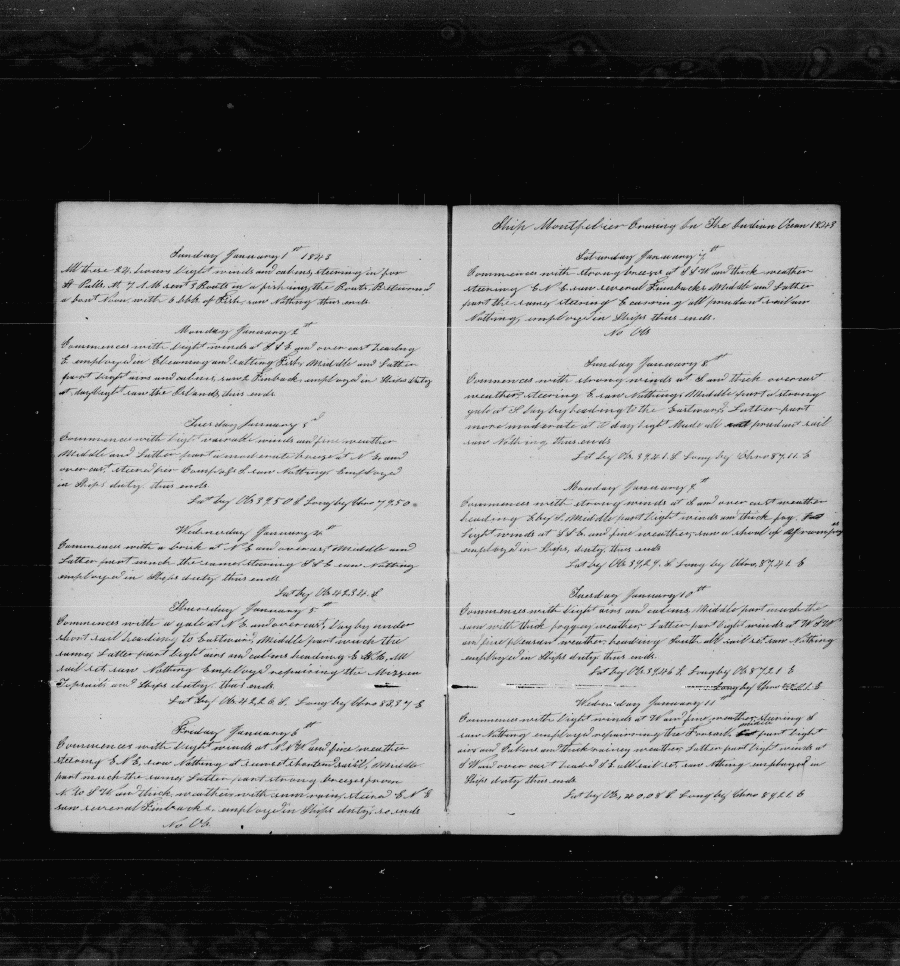 Sunday January 1st 1843
All these 24 hours Light winds and calms, steering in for
St Palls At 7 A.M sent 3 Boats in a fishing, the Boats Returned
a bout Noon with 6 bbls of Fish, saw Nothing thus ends
Monday January 2th
Commences with Light winds at S S E and over cast heading
E employed in Cleaning and salting Fish, Middle and Latter
part Light airs and calms, saw 2 Finbacks, employed in Ships duty
at daylight saw the Island, thus ends
Tuesday January 3d
Commences with Light winds and fine weather
Middle and Latter part a moderate breeze at N E and
over cast, steered per Compass E saw Nothing Employed
in Ships duty thus ends
Lat by Ob 39.50 S Long by Chro 79.50
Wednesday January 4
Commences with a brisk at N E and over cast Middle and
Latter part much the same, steering S S E saw Nothing
employed in Ships duty thus ends
Lat by Ob 42.34 S
Thursday January 5th
Commences with a gale at N E and over cast, Lay by under
short sail heading to Eastward, Middle part much the
same, Latter part Light airs and calms heading E All
sail set, saw Nothing Employed repairing the Mizzen
Topsail and Ships duty thus ends
Lat by Ob 42.26 S Long by Chro 82.37 E
Friday January 6th
Commences with Light winds at N.N W and fine weather
steering E N E, saw Nothing at sunset shortened sail, Middle
part much the same, Latter part strong breezes from
N to S W and thick weather with some rain, steered E N E
saw several Finbacks, employed in Ships duty, so ends
No Ob
Ship Montpelier Cruising In The Indian Ocean 1843
Saturday January 7th
Commences with strong breeze at S S W and thick weather
steering E N E saw several Finbacks Middle and Latter
part the same, steering E carrying all prudent sail saw
Nothing, employed in Ships thus ends.
No Ob
Sunday January 8th
Commences with strong winds at S and thick over cast
weather, steering E saw Nothing, Middle part a strong
gale at S Lay by heading to the Eastward, Latter part
more moderate at day light Made all prudent sail
saw Nothing thus ends
Lat by Ob. 39.41 S Long by Chro 87.11 E
Monday January 9th
Commences with strong winds at S and over cast weather
heading E by S, Middle part Light winds and thick fog,
Light winds at S S E and fine weather, saw a shoal of
employed in Ships, duty, thus ends
Lat by Ob 39.29 S Long by Chro. 87.41 E
Tuesday January 10th
Commences with Light airs and calms, Middle part much the
same with thick foggy weather, Latter part Light winds at W S W
and fine pleasant weather, heading South all sail set, saw Nothing
employed in Ships duty thus ends
Lat by Ob 39.46 S Long by Ob 87.21 E
Long by Chro E
Wednesday January 11th
Commences with Light winds at W and fine weather, steering S
saw Nothing employed repairing the Foresail, middle part Light
airs and Calms and thick rainy weather, Latter part Light winds at
S W and over cast headed S E all sail set, saw thing employed in
Ships duty thus ends
Lat by Ob, 40.08 S Long by Chro 89.21 E